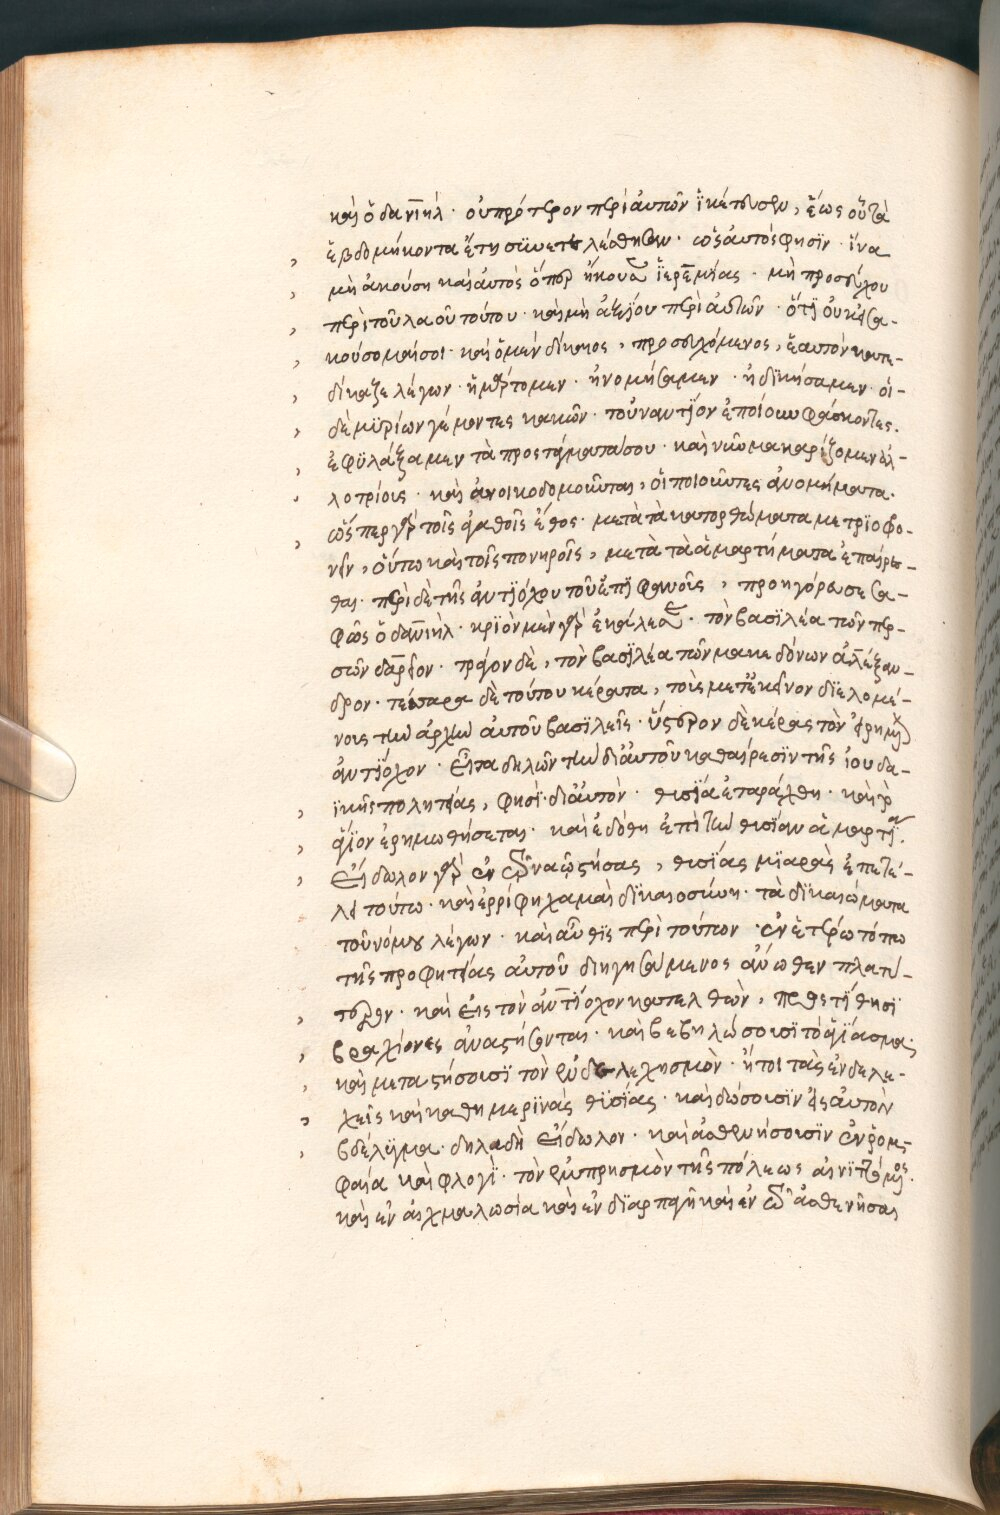 καὶ ὁ δανιὴλ· οὐ πρότερον περὶ αὐτῶν ἱκέτευσεν, ἕως οὗ τὰ
ἑβδομήκοντα ἔτη συνετελέσθησαν· ὡς αὐτός φησιν· ἵνα
μὴ ἀκούση καὶ αὐτὸς ὅπερ ἤκουσεν ἱερεμίας· μὴ προσεύχου
περὶ τοῦ λαοῦ τούτου· καὶ μὴ ἀξίου περὶ αὐτῶν· ὅτι οὐκ εἰσα-
κούσομαί σοι· καὶ ὁ μὲν δίκαιος, προσευχόμενος, ἑαυτὸν κατε-
δίκαζε λέγων· ἡμάρτομεν· ἠνομήσαμεν· ἠδικήσαμεν· οἱ
δὲ μυρίων γέμοντες κακῶν· τοὐναντίον ἐποίουν φάσκοντες·
ἐφυλάξαμεν τὰ προστάγματά σου· καὶ νῦν μακαρίζομεν ἀλ-
λοτρίους· καὶ ἀνοικοδομοῦνται, οἱ ποιοῦντες ἀνομήματα·
ὥσπερ γὰρ τοῖς ἀγαθοῖς ἔθος· μετὰ τὰ κατορθώματα μετριοφρο-
νεῖν, οὕτω καὶ τοῖς πονηροῖς, μετὰ τὰ ἁμαρτήματα ἐπαίρεσ-
θαι· περὶ δὲ τῆς ἀντιόχου τοῦ ἐπιφανοῦς, προηγόρευσε σα-
φῶς ὁ δανιὴλ· κριὸν μὲν γὰρ ἐκάλεσε· τὸν βασιλέα τῶν περ-
σῶν δαρεῖον· τράγον δὲ, τὸν βασιλέα τῶν μακεδόνων ἀλέξαν-
δρον· τέσσαρα δὲ τούτου κέρατα, τοὺς μετ' ἐκεῖνον διελομέ-
νους τὴν ἀρχὴν αὐτοῦ βασιλεῖς· ὕστερον δὲ κέρας τὸν εἰρημένον
ἀντίοχον· εἶτα δηλῶν τὴν δι' αὐτοῦ καθαίρεσιν τῆς ἰουδα-
ϊκῆς πολιτείας, φησὶ· δι' αὐτὸν· θυσία ἐταράχθη· καὶ τὸ
ἅγιον ἐρημωθήσεται· καὶ ἐδόθη ἐπὶ τὴν θυσίαν ἁμαρτία·
εἴδωλον γὰρ ἐν τῷ ναῷ στήσας, θυσίας μιαρὰς ἐπετέ-
λει τούτω· καὶ ἐρρίφη χαμαὶ δικαιοσύνη· τὰ δικαιώματα
τοῦ νόμου λέγων· καὶ αὖθις περὶ τούτων ἐν ἑτέρω τόπω
τῆς προφητείας αὐτοῦ διηγησάμενος ἄνωθεν πλατύ-
τερον· καὶ εἰς τὸν ἀντίοχον κατελθὼν, προστίθησι
βραχίονες ἀναστήσονται· καὶ βεβηλώσουσι τὸ ἁγίασμα·
καὶ μεταστήσουσι τὸν ἐνδελεχισμὸν· ἤτοι τὰς ἐνδελε-
χεῖς καὶ καθημερινὰς θυσίας· καὶ δώσουσιν εἰς αὐτὸν
βδέλυγμα· δηλαδὴ εἴδωλον· καὶ ἀσθενήσουσιν ἐν ῥομ-
φαία καὶ φλογὶ· τὸν ἐμπρησμὸν τῆς πόλεως αἰνιττόμενος·
καὶ ἐν αἰχμαλωσία καὶ ἐν διαρπαγῆ καὶ ἐν τῷ ἀσθενῆσαι